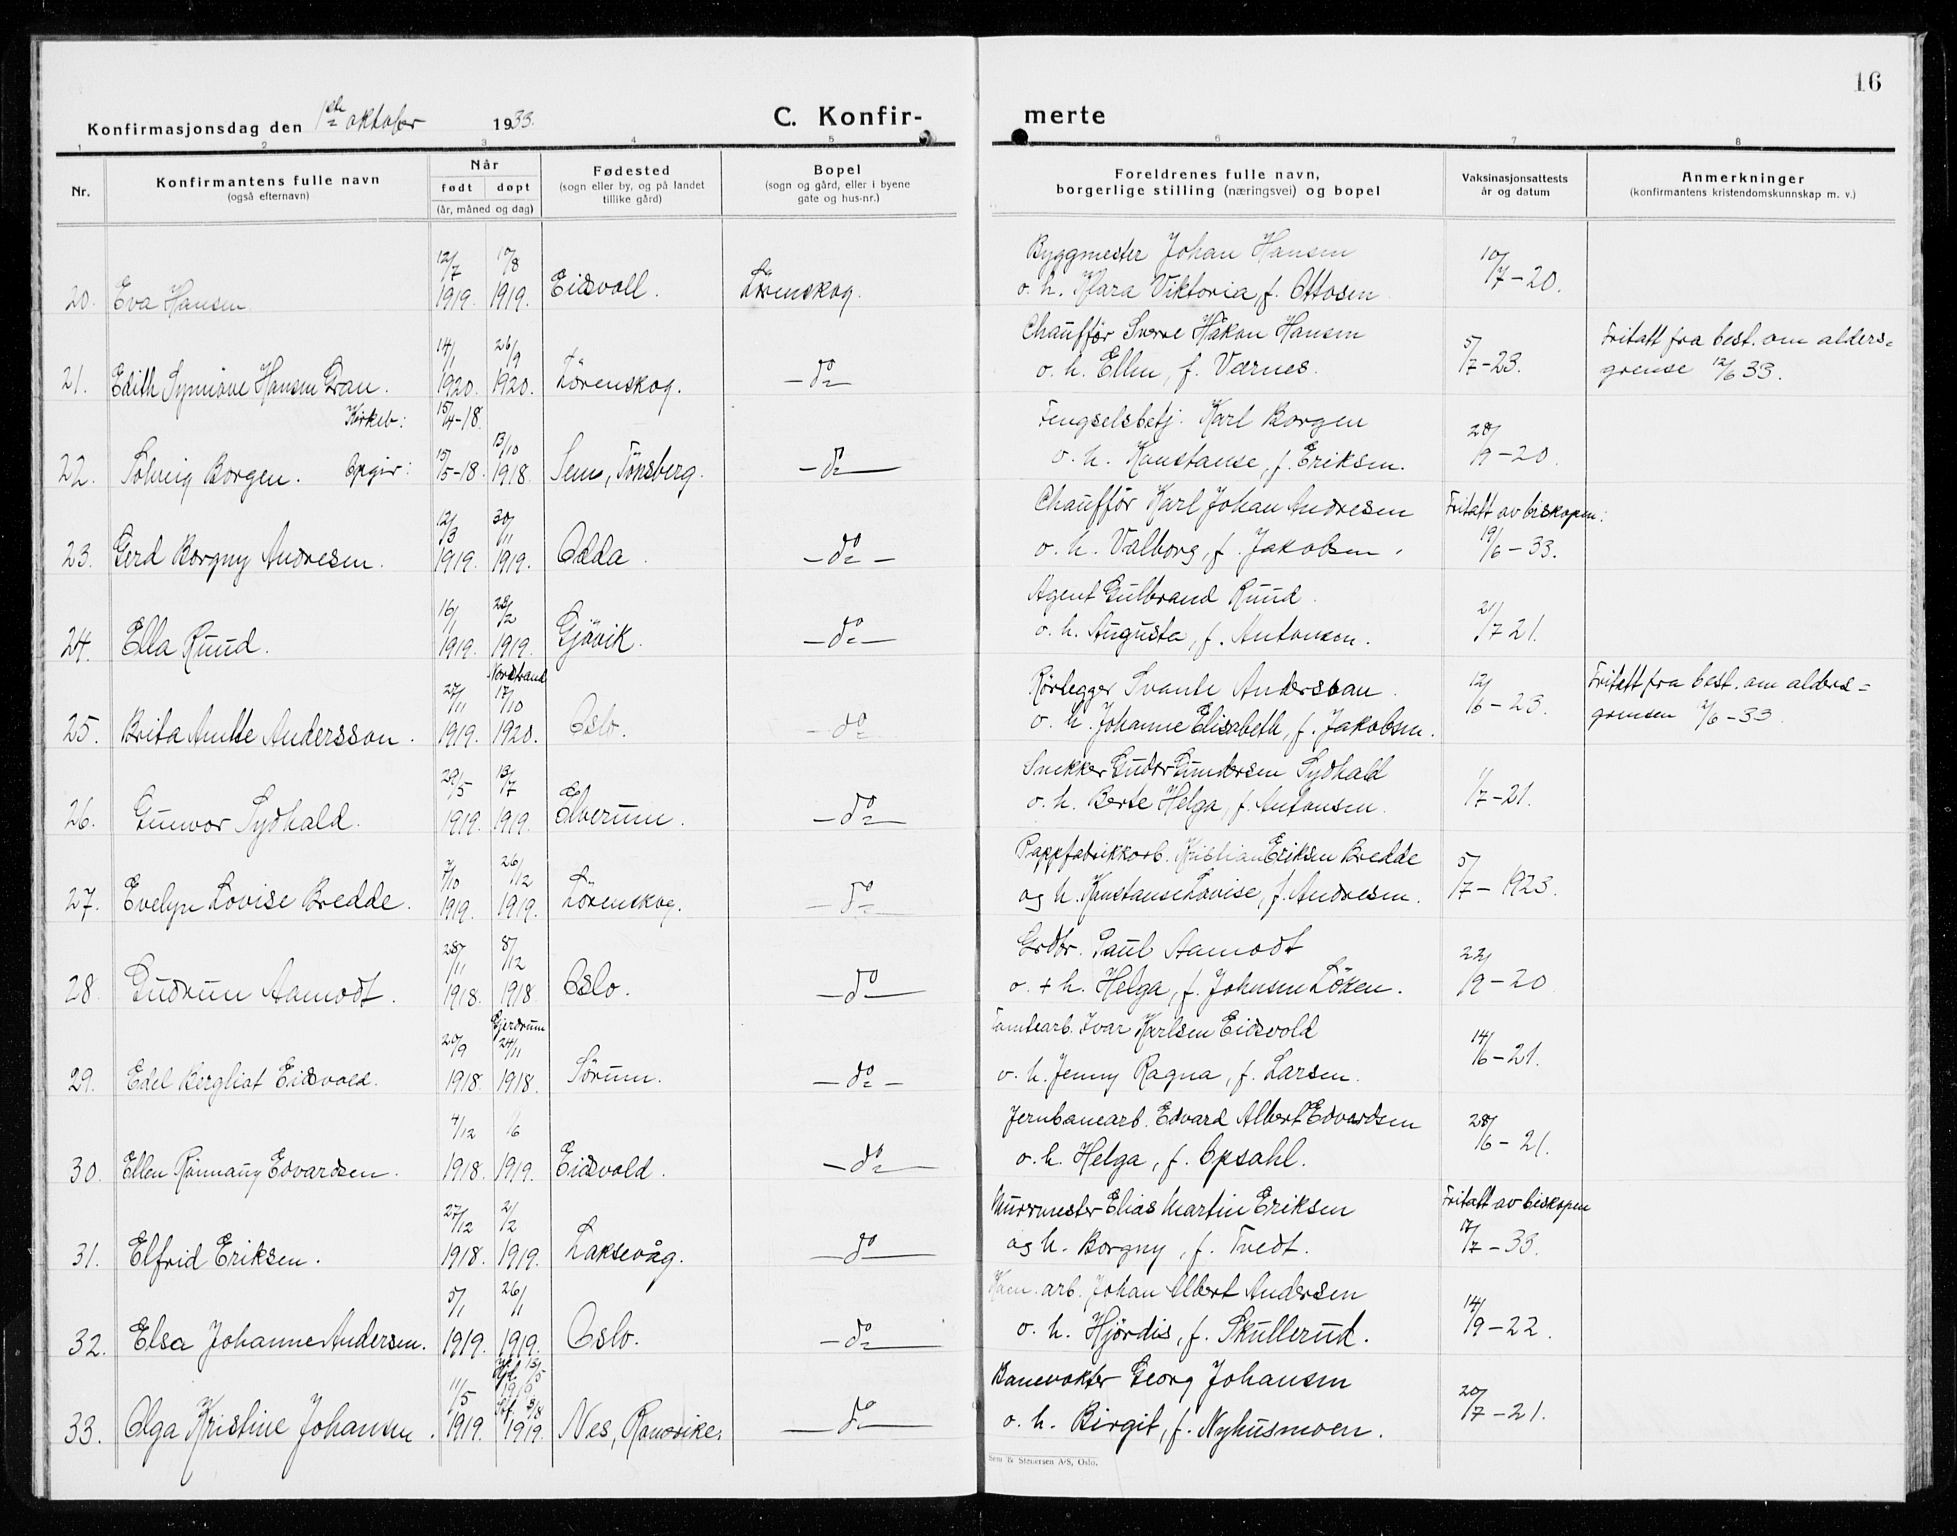 16
Konfirmasjonsdag den 1ste oktober 1933. C. Konfir- merte
1 2 3 4 5 6 7 8
Nr. Konfirmantens fulle navn (også efternavn) Når født døpt (år, måned og dag) Fødested (sogn eller by, og på landet tillike gård) Bopel (sogn og gård, eller i byene gate og hus-nr.) Foreldrenes fulle navn, borgerlige stilling (næringsvei) og bopel Vaksinasjonsattests år og datum Anmerkninger (konfirmantens kristendomskunnskap m. v.)
12/7 17/8 Byggmester Johan Hansen 10/7-20.
20. Eva Hansen 1919. 1919. Eidsvoll. Lørenskog. o. h. Klara Viktoria, f. Ottosen
14/1 26/9 Chauffør Sverre Håkon Hansen 5/7-23. Fritatt fra best. om alders=
21. Edith Synnøve Hansen Dran. 1920. 1920. Lørenskog. – do – o. h. Ellen, f. Værnes. grense 12/6 33.
Kirkeb: 15/4-18. 13/10 Fengselsbetj. Karl Borgen 28/9-20.
22. Solveig Borgen. Opgir: 15/5-18. 1918. Sem, Tønsberg. – do – o. h. Konstanse, f. Eriksen.
12/3 30/11 Chauffør Karl Johan Andresen Fritatt av biskopen:
23. Gerd Borgny Andresen. 1919. 1919. Odda. – do – o. h. Valborg, f. Jakobsen. 19/6-33.
16/1 28/2 Agent Gulbrand Ruud. 21/7 21.
24. Ella Ruud. 1919. 1919. Gjøvik. – do – o. h. Augusta, f. Antonsen.
Nordstrand
27/11 17/10 Rørlegger Svante Andersson. 12/6-23. Fritatt fra best. om alders=
25. Brita Anette Andersson. 1919. 1920. Oslo. – do – o. h. Johanne Elisabeth, f. Jakobsen. grensen 2/6-33
29/5 13/7 Snekker Gudbr Gundersen Sydhald 1/7-21.
26. Gunvor Sydhald. 1919. 1919. Elverum. – do – o. h. Berte Helga, f. Antonsen.
7/10 26/12 Pappfabrikkarb. Kristian Eriksen Bredde 5/7-1923.
27. Evelyn Lovise Bredde. 1919. 1919. Lørenskog. – do – og h. Konstanse Lovise, f. Andresen.
28/11 8/12 Grdbr. Paul Aamodt 22/9-20
28. Gudrun Aamodt. 1918. 1918 Oslo. – do – o. + h. Helga, f. Johnsen Løken.
Gjerdrum
20/9 24/11 Tomtearb. Ivar Karlsen Eidsvold 14/6-21.
29. Edel Bergliot Eidsvold. 1918. 1918. Sørum. – do – o. h. Jenny Ragna, f. Larsen.
4/12 1/6 Jernbanearb. Edvard Albert Edvardsen 28/6-21.
30. Ellen Rønnaug Edvardsen. 1918. 1919. Eidsvold. – do – o. h. Helga, f. Opsahl.
27/12 2/2 Murmester Elias Martin Eriksen Fritatt av biskopen
31. Elfrid Eriksen. 1918. 1919. Laksevåg. – do – og h. Borgny, f. Tvedt. 17/7-33.
5/1 26/1 Kom. arb. Johan Albert Andersen 14/9-22.
32. Elsa Johanne Andersen. 1919. 1919. Oslo. – do – o. h. Hjørdis, f. Skullerud.
11/5 Hjd. 13/5 1919 Banevokter Georg Johansen 20/7-21.
33. Olga Kristine Johansen. 1919. 3/8 1919. Nes, Romerike. – do – o. h. Birgit, f. Nyhusmoen.
Sem & Stenersen A/S, Oslo.